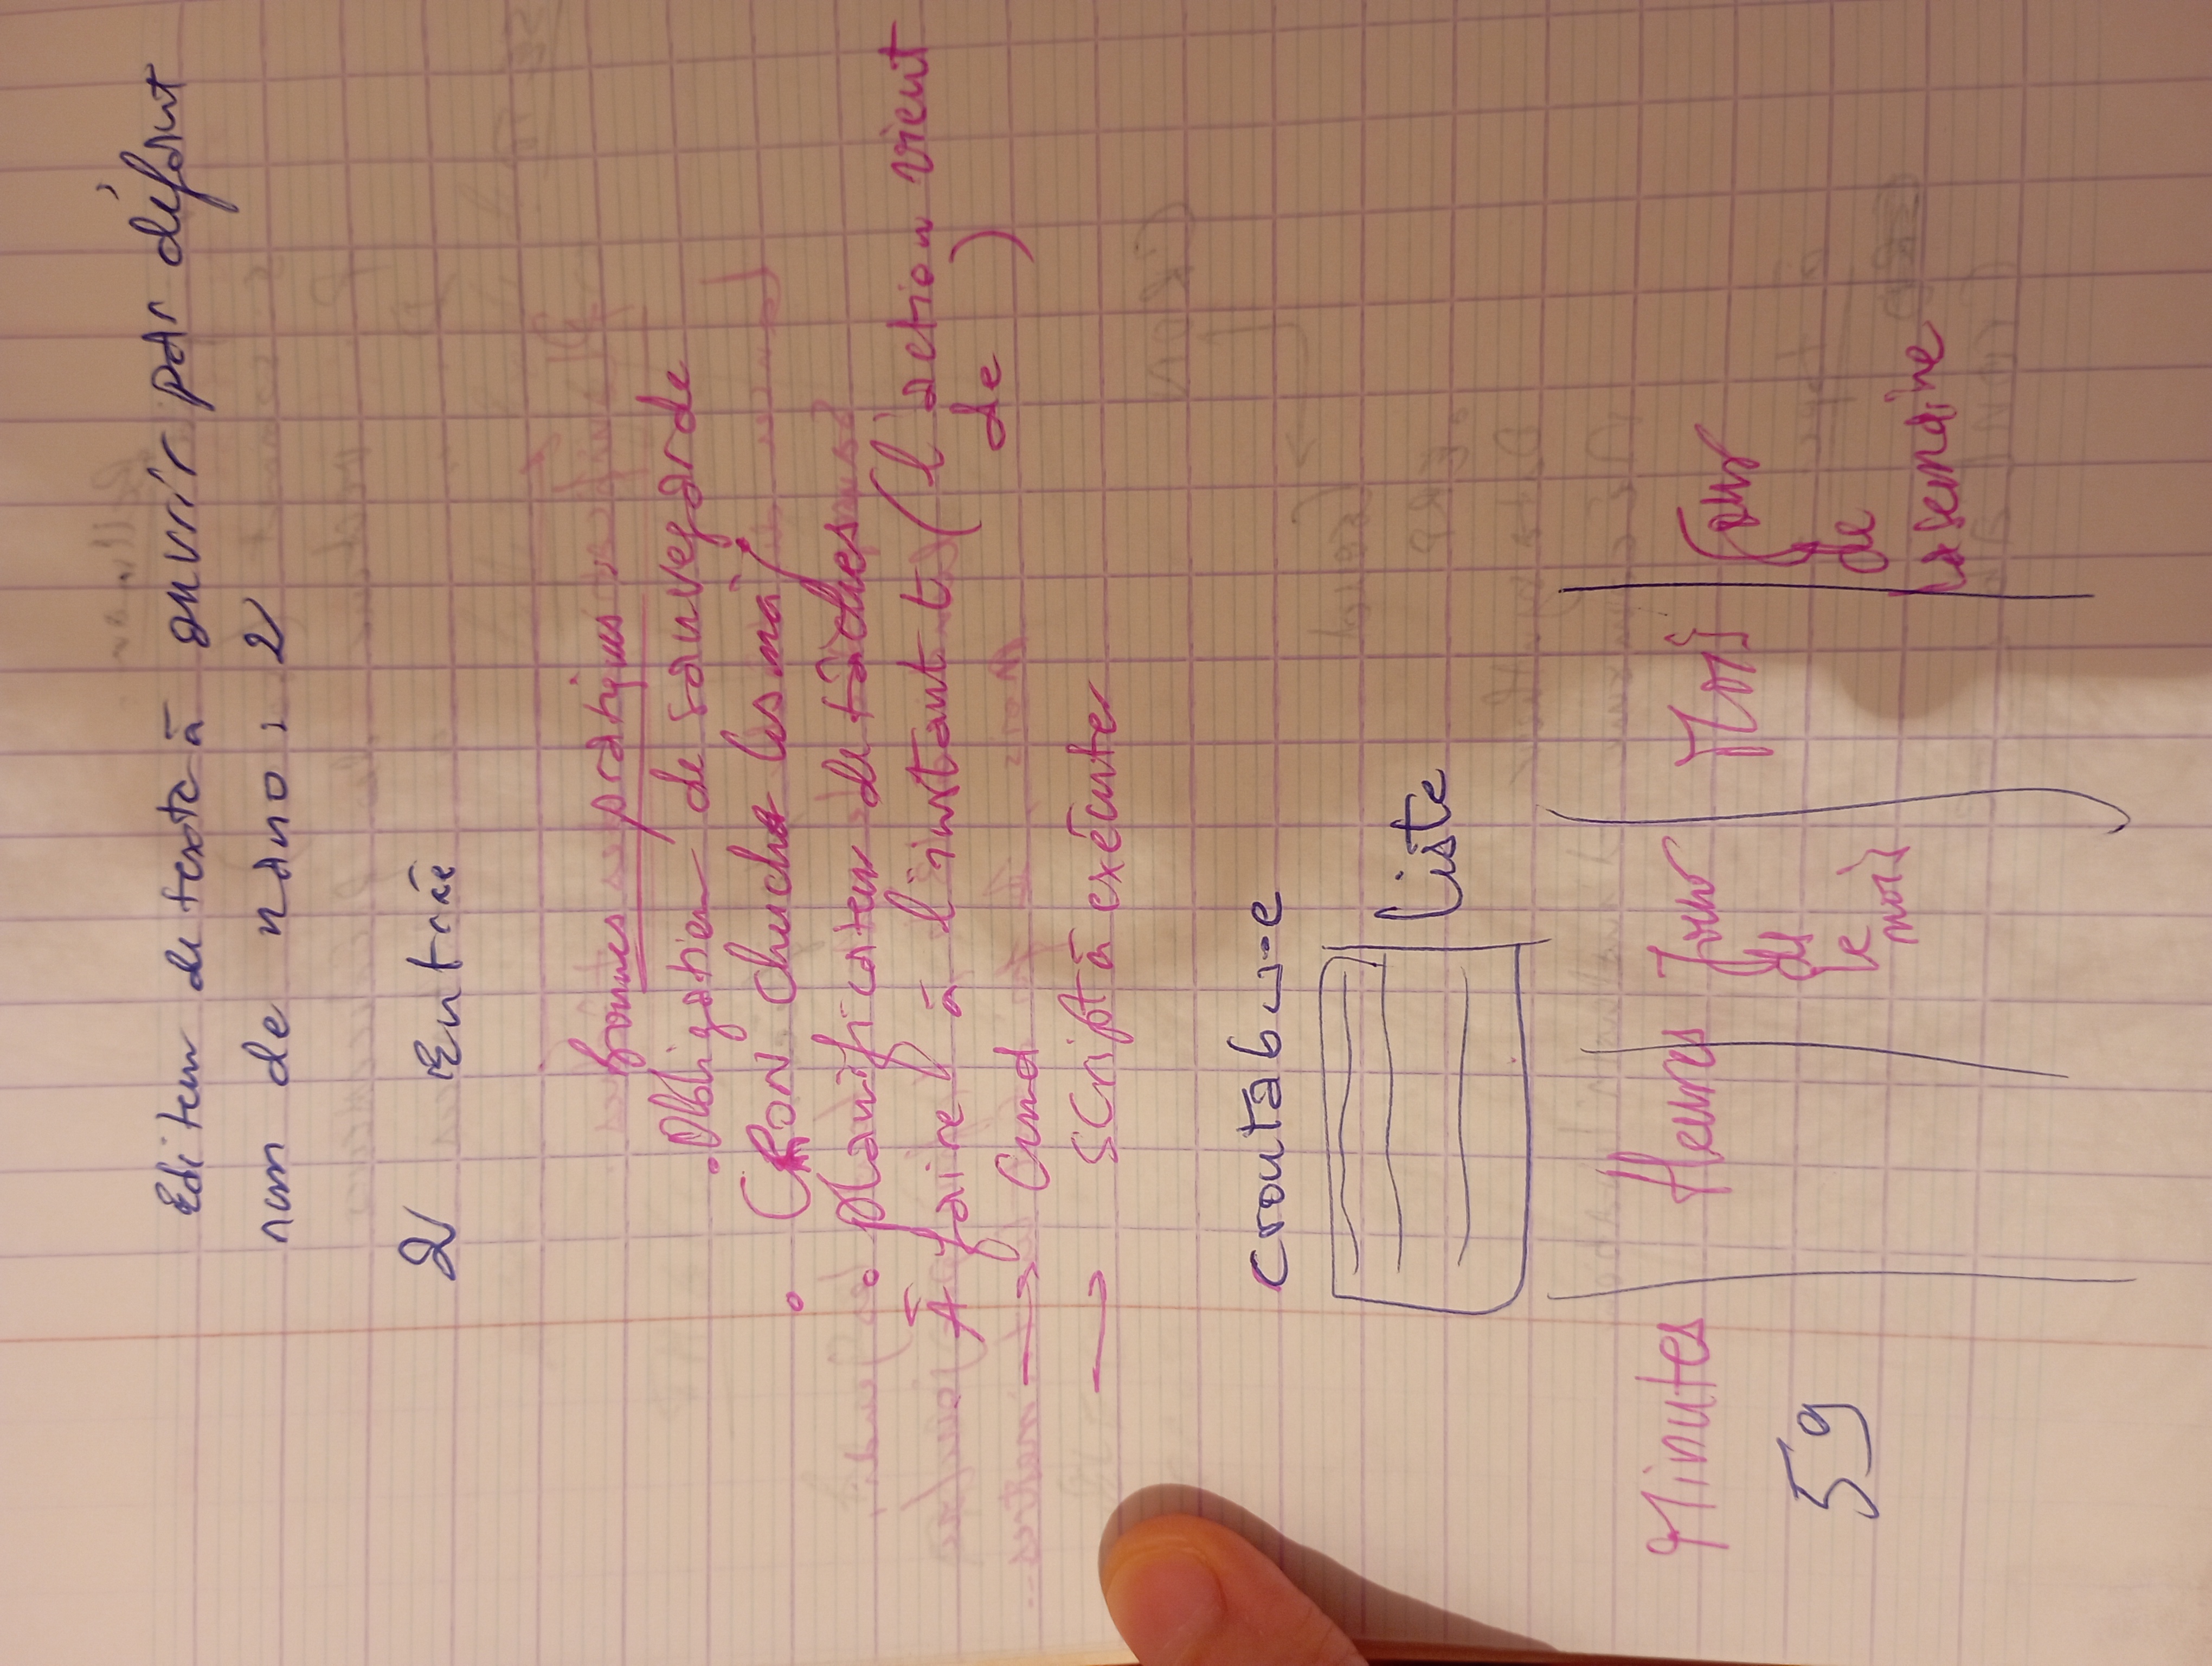 Editeur de texte à ouvrir par défaut
num de nano : 2
2 Entrée
bonnes pratiques
. Obligation de sauvegarde
° CRON check les màj
° Planificateur de tâches
(À faire) à l'instant t (l'action vient
de )
→ Cmd
→ script à exécuter
crontab -e
liste
Minutes Heures Jours Mois Jours
de de
le mois la semaine
59